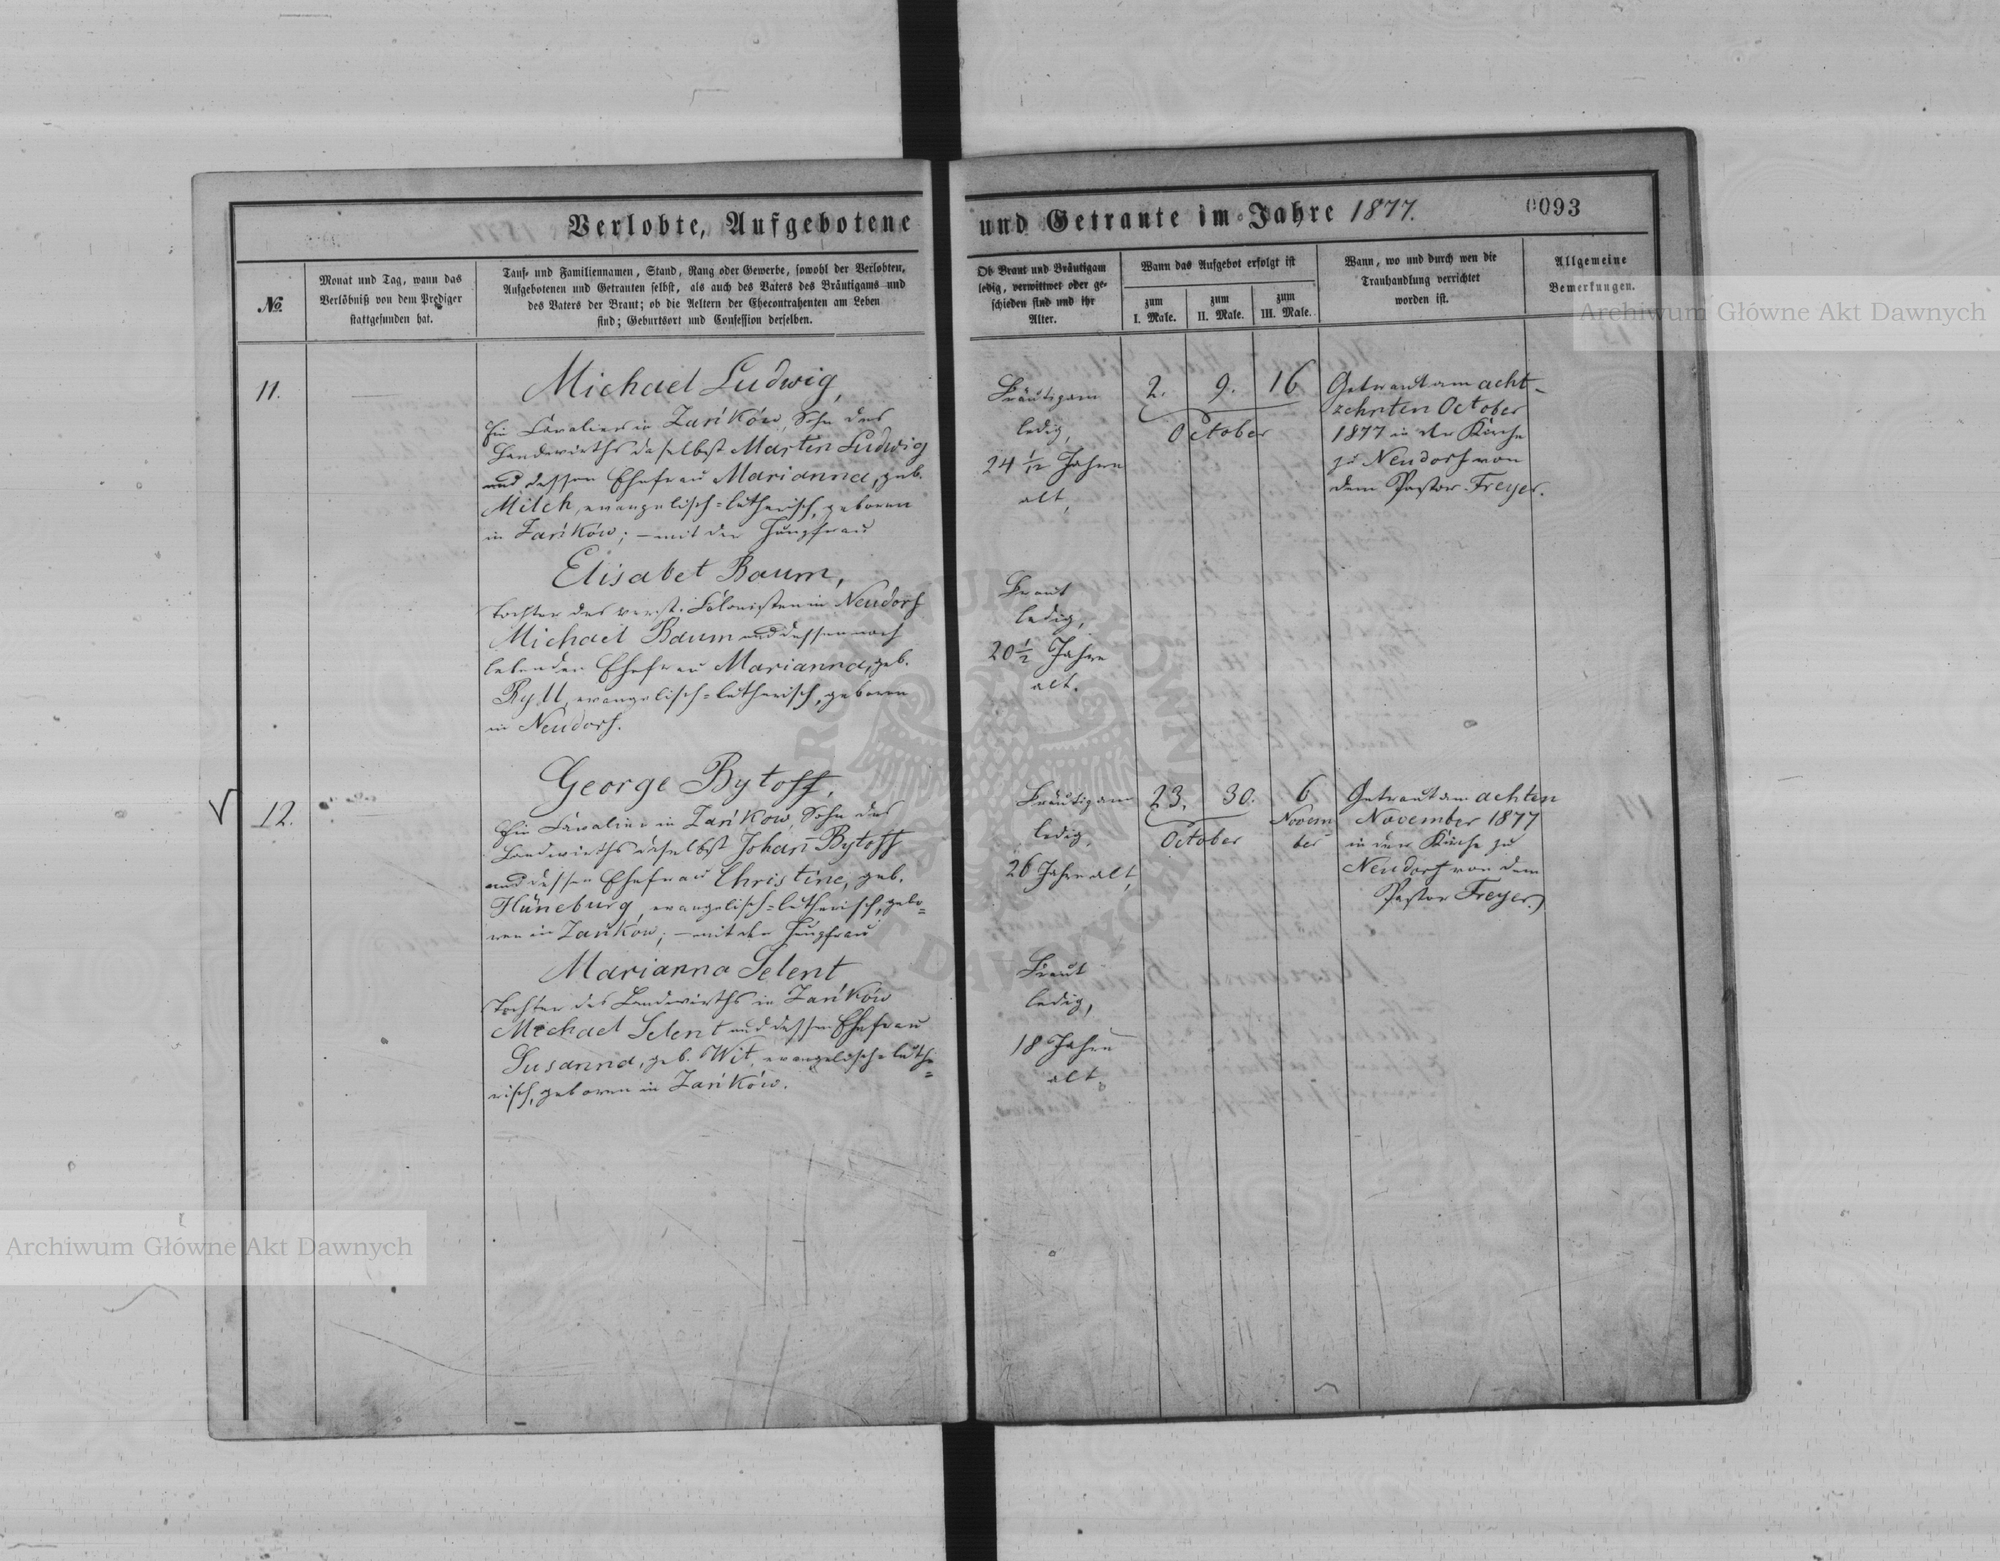 Verlobte, Aufgebotene und Getraute im Jahre 1877.
0093
№
Monat und Tag, wann das
Verlöbniß von dem Prediger
stattgefunden hat.
Tauf- und Familiennamen, Stand, Rang oder Gewerbe, sowohl der Verlobten,
Aufgebotenen und Getrauten selbst, als auch des Vaters des Bräutigams und
des Vaters der Braut; ob die Aeltern der Ehecontrahenten am Leben
sind; Geburtsort und Confession derselben.
Ob Braut und Bräutigam
ledig, verwittwet oder ge-
schieden sind und ihr
Alter.
Wann das Aufgebot erfolgt ist
zum
I. Male.
zum
II. Male.
zum
III. Male.
Wann, wo und durch wen die
Trauhandlung verrichtet
worden ist.
Allgemeine
Bemerkungen.
11.
Michael Ludwig,
Ein Cavalier in Zańków, Sohn des
Landwirths daselbst Martin Ludwig
und dessen Ehefrau Marianna, geb.
Milch, evangelisch=lutherisch, geboren
in Zańków; – mit der Jungfrau
Elisabet Baum,
Tochter des verst. Colonisten in Neudorf
Michael Baum und dessen noch
lebenden Ehefrau Marianna, geb.
Ryll, evangelisch=lutherisch, geboren
in Neudorf.
Bräutigam
ledig,
24 1/12 Jahre
alt,
Braut
ledig,
20 1/2 Jahre
alt.
2. 9. 16
October
Getraut am acht-
zehnten October
1877 in der Kirche
zu Neudorf von
dem Pastor Freyer.
12.
George Bytoff,
Ein Cavalier in Zańkow, Sohn des
Landwirths daselbst Johan̄ Bytoff
und dessen Ehefrau Christine, geb.
Hüneburg, evangelisch=lutherisch, gebo=
ren in Zańkow; – mit der Jungfrau
Marianna Selent
Tochter des Landwirths in Zańków
Michael Selent und dessen Ehefrau
Susanna, geb. Wit, evangelisch=luthe=
risch, geboren in Zańków.
Bräutigam
ledig,
26 Jahre alt,
Braut
ledig,
18 Jahre
alt.
23. 30. 6
October
Novem
ber
Getraut am achten
November 1877
in der Kirche zu
Neudorf von dem
Pastor Freyer.
Archiwum Główne Akt Dawnych
Archiwum Główne Akt Dawnych